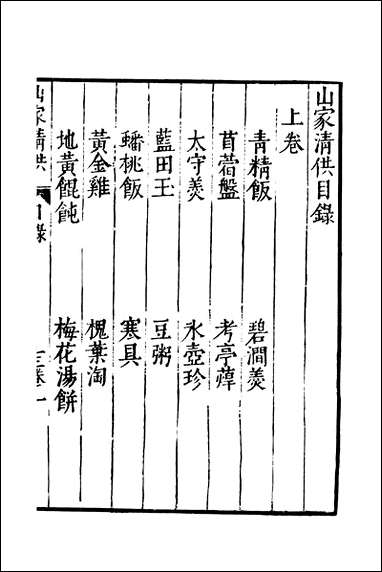 山家清供目錄
上卷
青精飯 碧澗羹
苜蓿盤 考亭蔊
太守羹 氷壺珍
藍田玉 豆粥
蟠桃飯 寒具
黃金雞 槐葉淘
地黃餛飩 梅花湯餅
山家清供 目錄 卷一